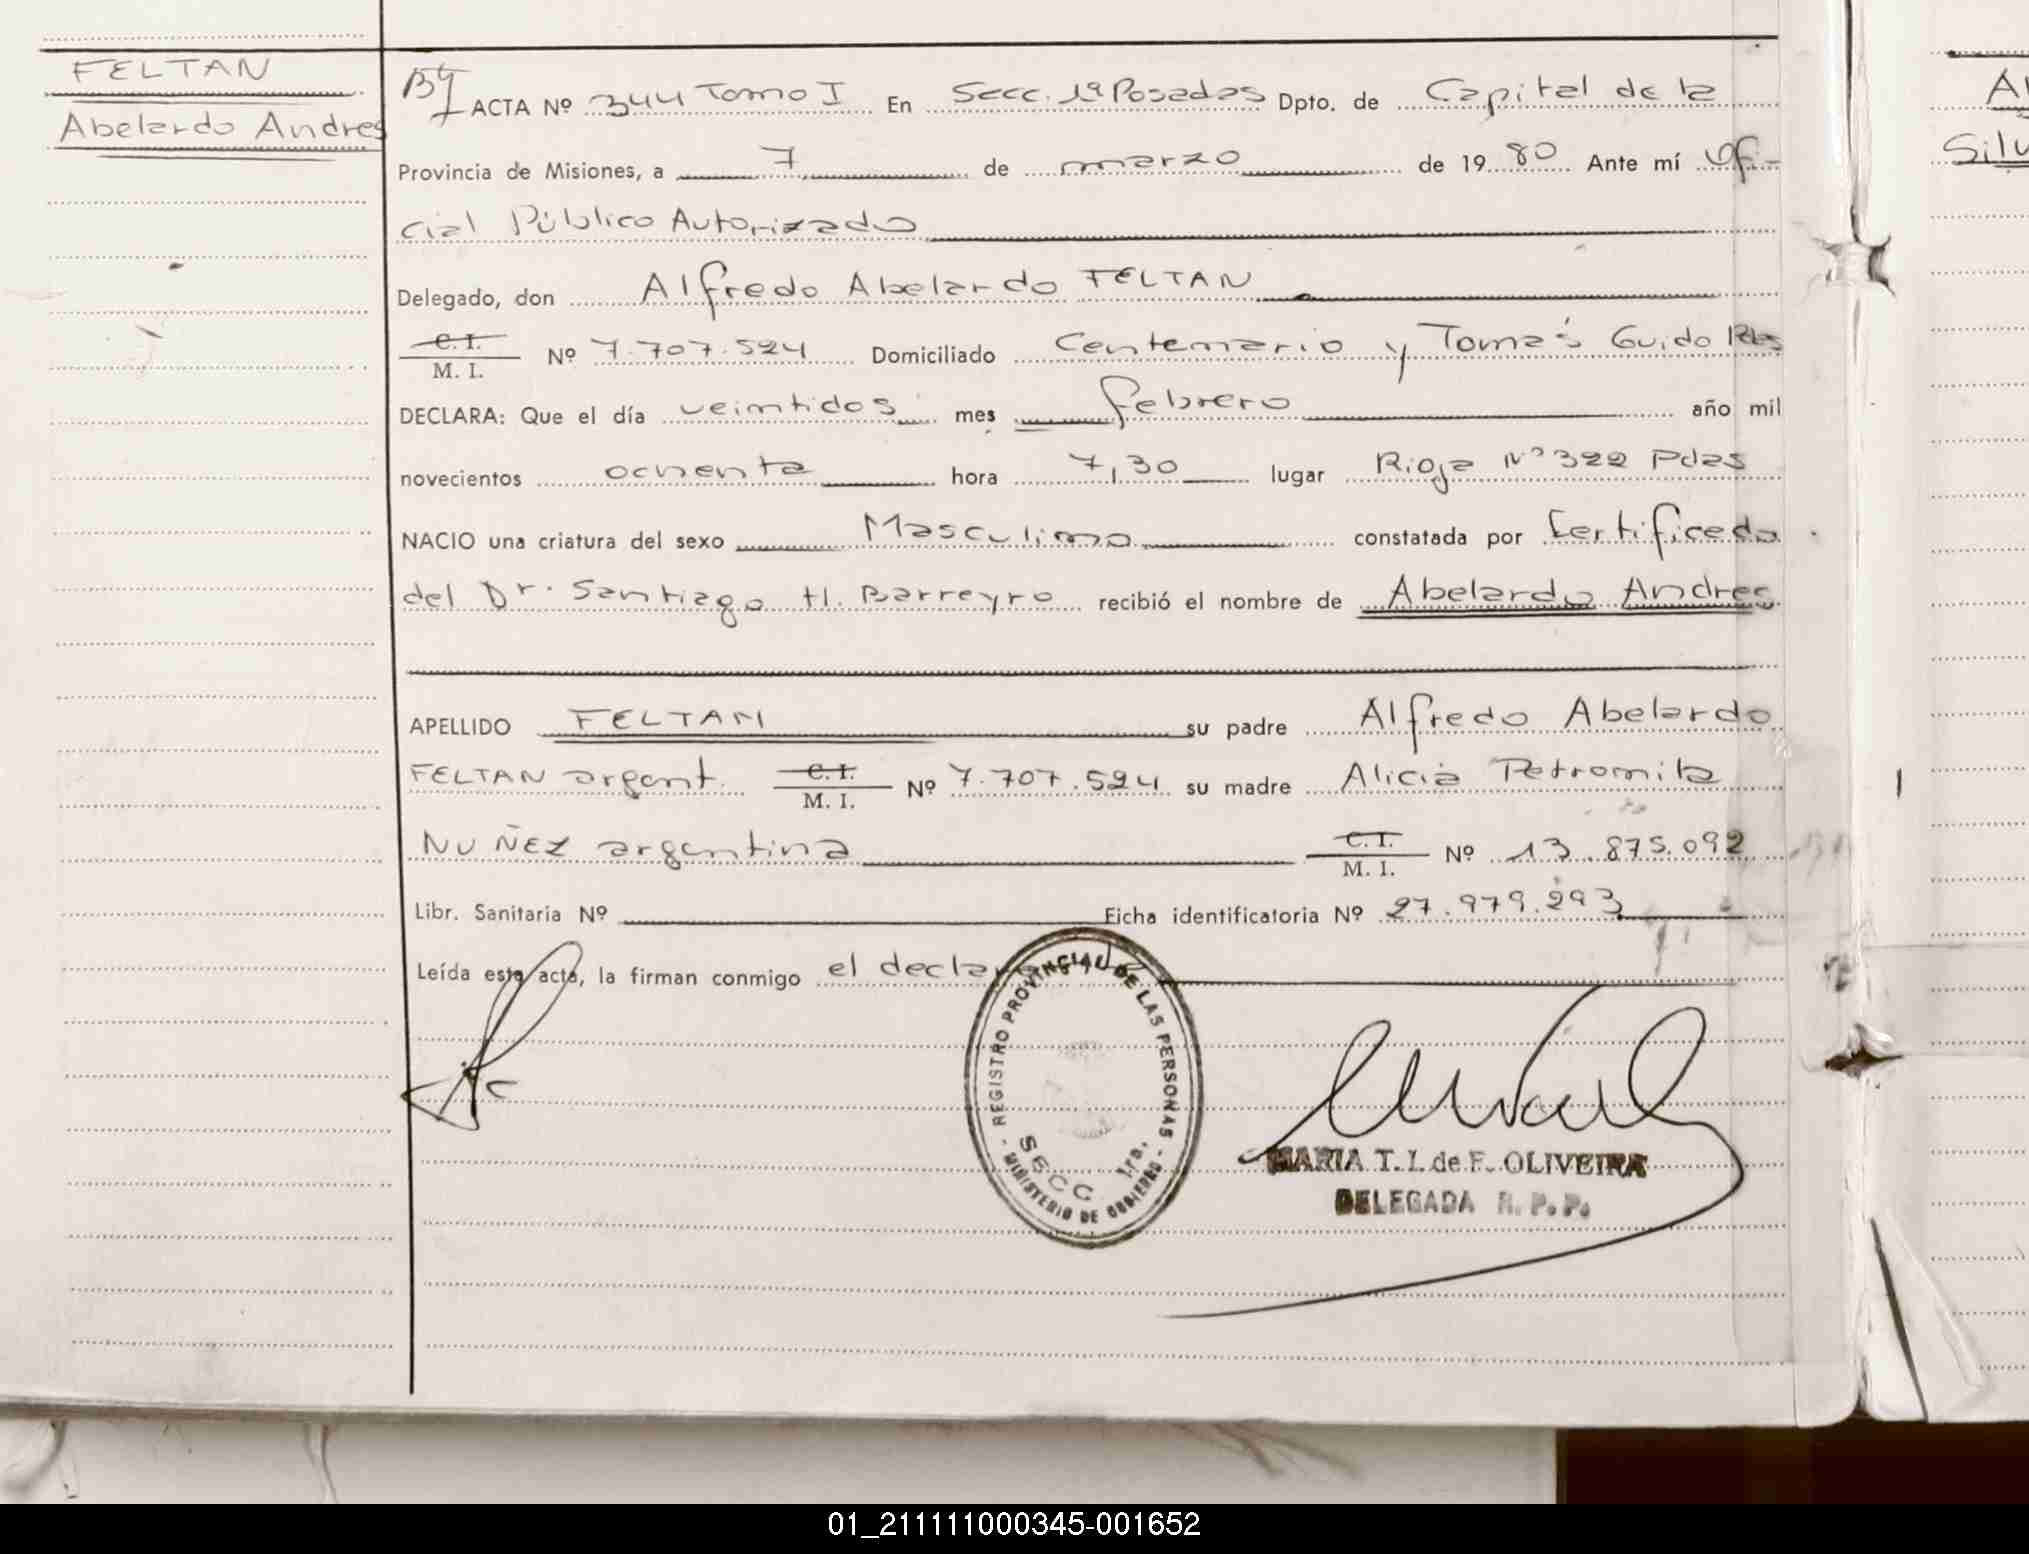 FELTAN
Abelardo Andres
ACTA Nº 344 Tomo I En Secc. 1ª Posadas Dpto. de Capital de la
Provincia de Misiones, a 7 de marzo de 1980 Ante mí Ofi-
cial Público Autorizado
Delegado, don Alfredo Abelardo FELTAN
C. I.
M. I. Nº 7.707.524 Domiciliado Centenario y Tomás Guido Pdas
DECLARA: Que el día veintidos mes febrero año mil
novecientos ochenta hora 7,30 lugar Rioja Nº 322 Pdas
NACIO una criatura del sexo Masculino constatada por Certificado
del Dr. Santiago H. Barreyro recibió el nombre de Abelardo Andres
APELLIDO FELTAN su padre Alfredo Abelardo
FELTAN argent. C. I.
M. I. Nº 7.707.524 su madre Alicia Petronila
NUÑEZ argentina C. I.
M. I. Nº 13.875.092
Libr. Sanitaria Nº Ficha identificatoria Nº 27.979.293
Leída esta acta, la firman conmigo el
REGISTRO PROVINCIAL DE LAS PERSONAS
SECC 1ra.
MINISTERIO DE GOBIERNO
MARIA T. I. de F. OLIVEIRA
DELEGADA R. P. P.
Silv
01_211111000345-001652